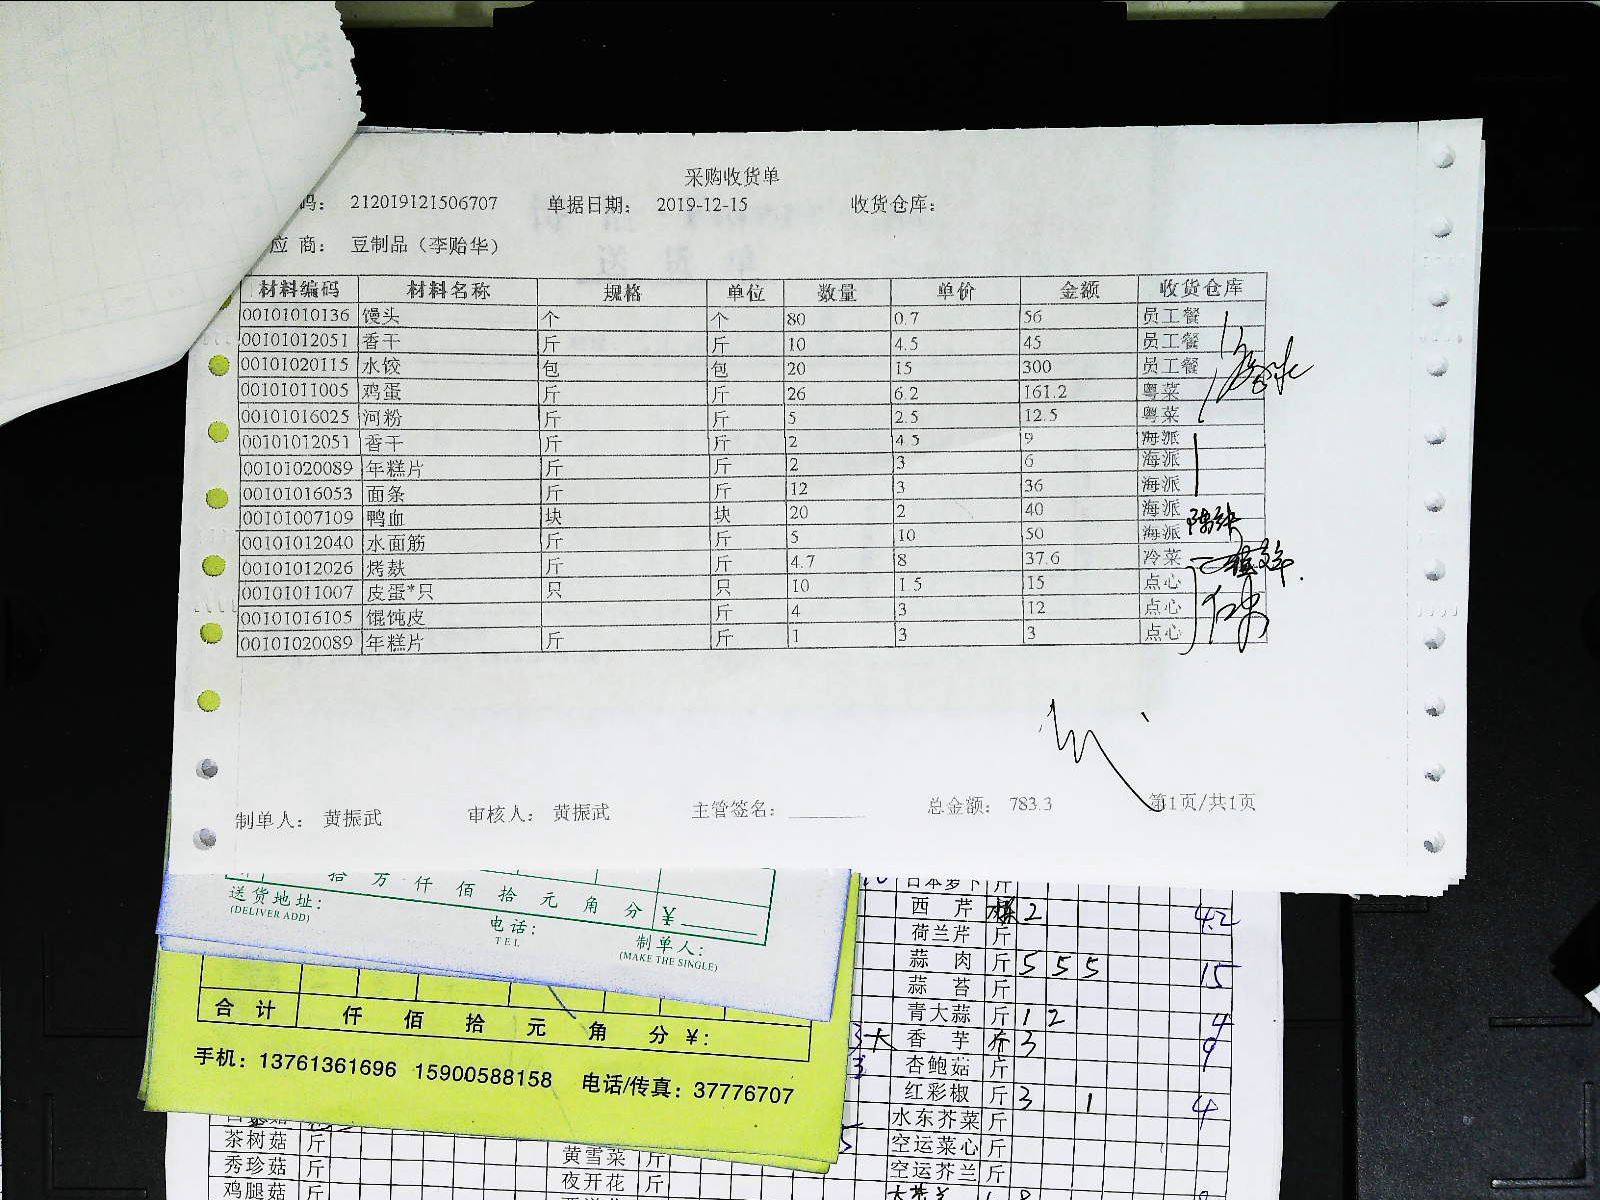 采购收货单
码： 212019121506707 单据日期： 2019-12-15 收货仓库：
应 商： 豆制品（李贻华）
材料编码 材料名称 规格 单位 数量 单价 金额 收货仓库
00101010136 馒头 个 个 80 0.7 56 员工餐
00101012051 香干 斤 斤 10 4.5 45 员工餐
00101020115 水饺 包 包 20 15 300 员工餐
00101011005 鸡蛋 斤 斤 26 6.2 161.2 粤菜
00101016025 河粉 斤 斤 5 2.5 12.5 粤菜
00101012051 香干 斤 斤 2 4.5 9 海派
00101020089 年糕片 斤 斤 2 3 6 海派
00101016053 面条 斤 斤 12 3 36 海派
00101007109 鸭血 块 块 20 2 40 海派
00101012040 水面筋 斤 斤 5 10 50 海派
00101012026 烤麸 斤 斤 4.7 8 37.6 冷菜
00101011007 皮蛋*只 只 只 10 1.5 15 点心
00101016105 馄饨皮 斤 4 3 12 点心
00101020089 年糕片 斤 斤 1 3 3 点心
制单人： 黄振武 审核人： 黄振武 主管签名： 总金额： 783.3 第1页/共1页
拾 万 仟 佰 拾 元 角 分 ¥
送货地址：
(DELIVER ADD)
电话：
TEL
制单人：
(MAKE THE SINGLE)
合 计 仟 佰 拾 元 角 分 ¥：
手机：13761361696 15900588158 电话/传真：37776707
日本萝卜 斤
西 芹 2 42
荷兰芹 斤
蒜 肉 斤 5 5 5 15
蒜 苔 斤
青大蒜 斤 1 2 4
香 芋 斤 3 9
杏鲍菇 斤
红彩椒 斤 3 1 4
水东芥菜 斤
空运菜心 斤
空运芥兰 斤
茶树菇 斤
秀珍菇 斤
鸡腿菇 斤
黄雪菜 斤
夜开花 斤